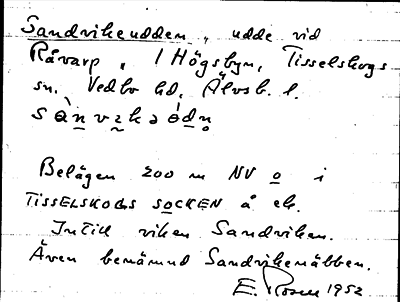 Sandvikeudden, udde vid
Råvarp, / Högsbyn, Tisselskogs
sn. Vedbo hd, Älvsb. l.
Belägen 200 m NV o i
TISSELSKOGS SOCKEN å ek.
Intill viken Sandviken.
Även benämnd Sandvikenäbben.
E. Rosen 1952